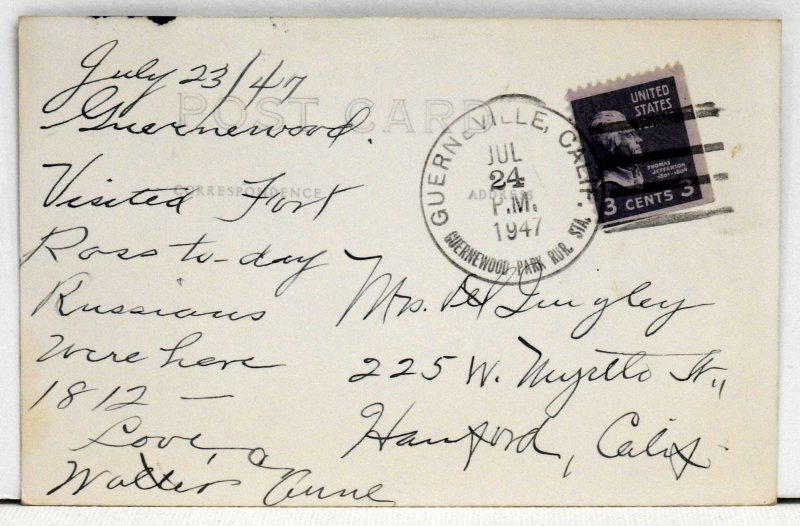 July 23/47
Guernewood.
POST CARD
CORRESPONDENCE
ADDRESS
Visited Fort
Ross to-day
Russians
Were here
1812 —
Love,
Walter Anne
GUERNEVILLE, CALIF.
JUL
24
P.M.
1947
GUERNEWOOD PARK RUR. STA.
UNITED
STATES
THOMAS
JEFFERSON
1801-1809
3 CENTS 3
Mrs. Gingley
225 W. Myrtle St.,
Hanford, Calif.